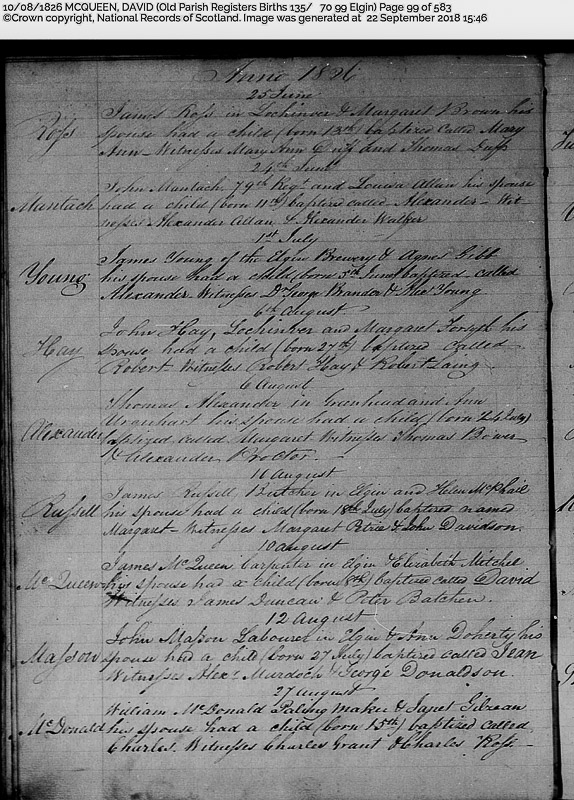 10/08/1826 MCQUEEN, DAVID (Old Parish Registers Births 135/ 70 99 Elgin) Page 99 of 583
©Crown copyright, National Records of Scotland. Image was generated at 22 September 2018 15:46
Anno 1826
25 June
Ross James Ross in Lochinver & Margaret Brown his
spouse had a child (born 13th) baptized called Mary
Ann - Witnesses Mary Ann Duff and Thomas Duff
24th June
Mantach John Mantach 79th Regt and Louisa Allan his spouse
had a child (born 11th) baptized called Alexander - Wit
nesses Alexander Allan & Alexander Walker
1st July
Young James Young of the Elgin Brewery & Agnes Gibb
his spouse had a child (born 5th June) baptized called
Alexander Witnesses Dr George Brander & Young
6th August
Hay John Hay, Lochinver and Margaret Forsyth his
spouse had a child (born 27th) baptized called
Robert Witnesses Robert Hay & Robert Laing
6 August
Alexander Thomas Alexander in Greenhead and Ann
Urquhart his spouse had a child (born 24 July)
baptized called Margaret Witnesses Thomas Bower
& Alexander Proctor. -
16 August
Russell James Russell Butcher in Elgin and Helen McPhail
his spouse had a child (born 18th July) baptized named
Margaret - Witnesses Margaret Petrie & John Davidson.
10 august
McQueen James McQueen Carpenter in Elgin & Elizabeth Mitchel
his spouse had a child (born 8th) baptized called David
Witnesses James Duncan & Peter Batchen.
12 August
Masson John Masson Labourer in Elgin & Ann Doherty his
spouse had a child (born 27 July) baptized called Jean
Witnesses Alexr Murdoch & George Donaldson.
27 August
McDonald William McDonald Paling maker & Janet Gilzean
his spouse had a child (born 15th) baptized called
Charles. Witnesses Charles Grant & Charles Ross -